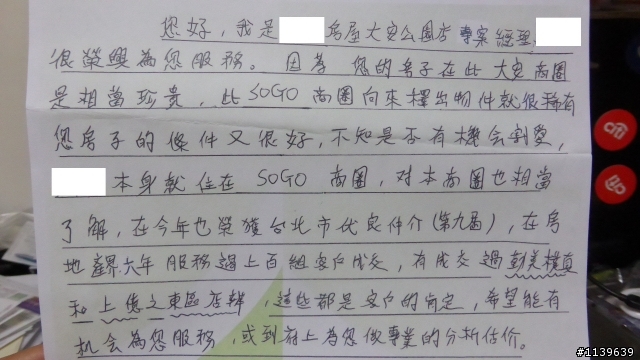 您好，我是 房屋大安公園店 專案經理
很榮興為您服務。因為 您的房子在此大安商圈
是相當珍貴，此SOGO商圈向來釋出物件就很稀有
您房子的條件又很好，不知是否有機會割愛，
本身就住在 SOGO 商圈，對本商圈也相當
了解，在今年也榮獲台北市優良仲介(第九屆)，在房
地產界六年 服務過上百組客戶成交，有成交過朝美橫貢
和上億之東區店辦，這些都是客戶的肯定，希望能有
机会為您服務，或到府上為您做專業的分析估价。
citi
#1139639